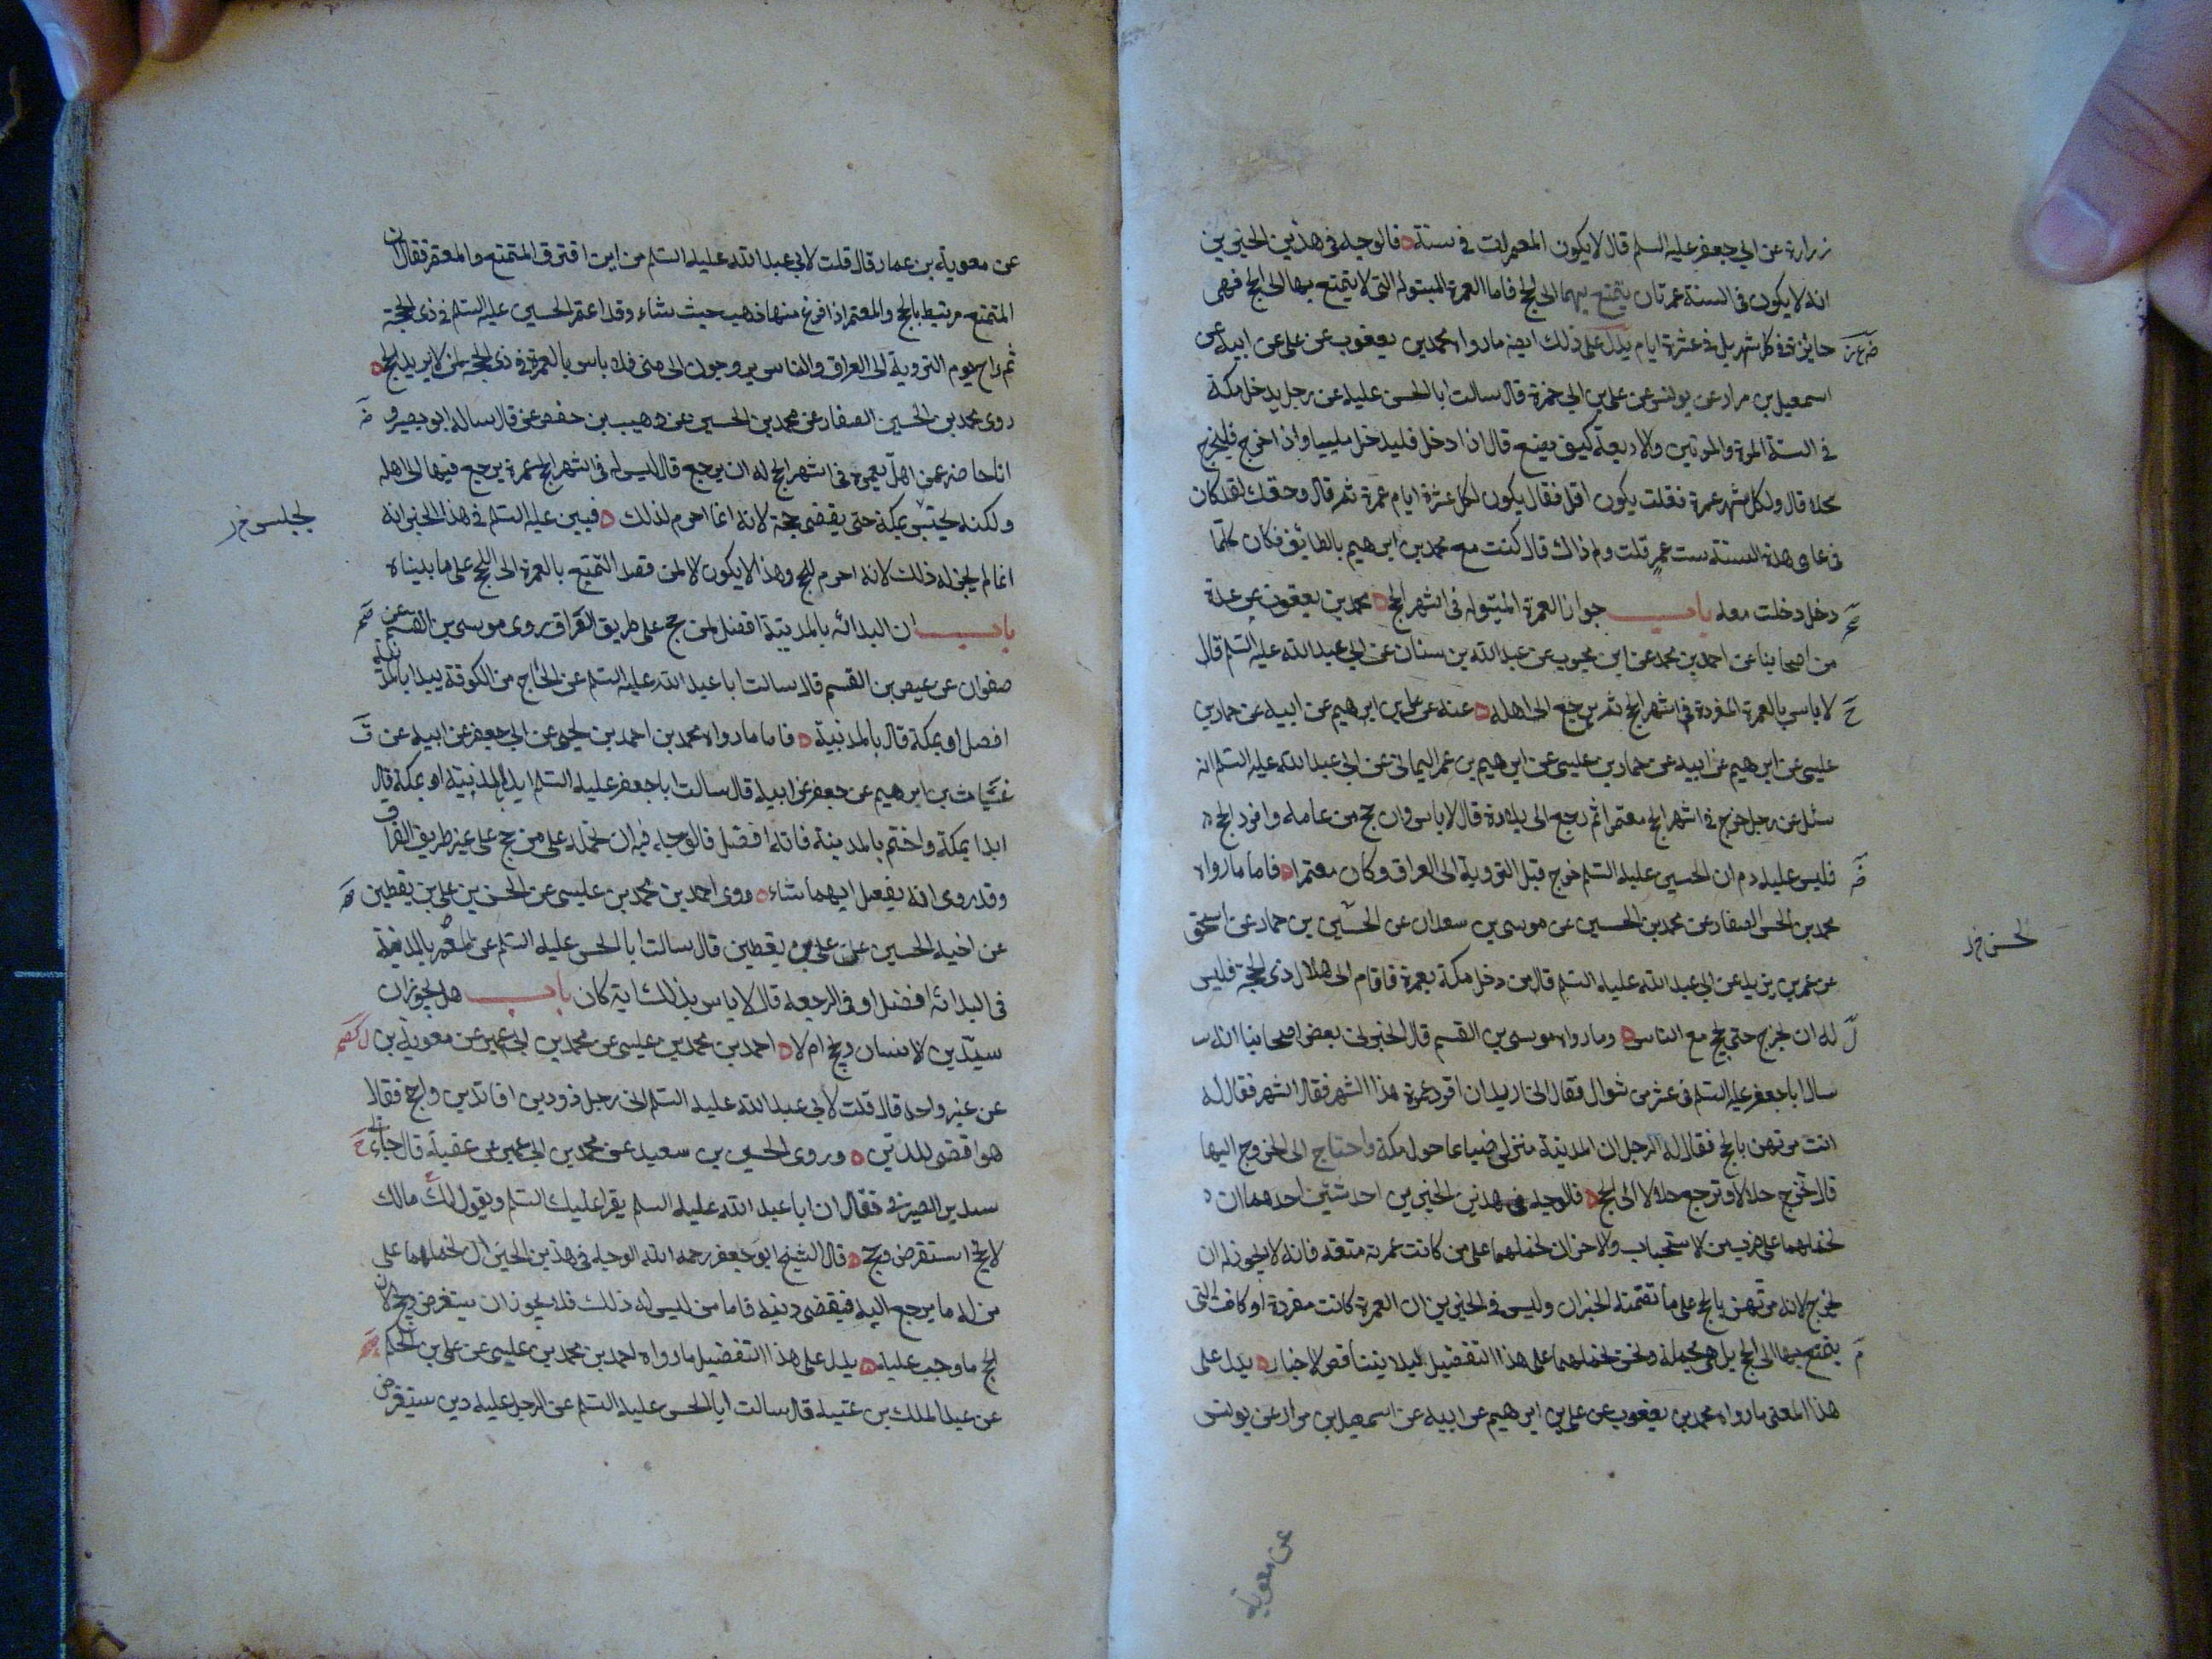 زرارة عن ابي جعفر عليه السلم قال لا يكون العمرتان في سنة فالوجه في هذين الخبرين
انه لا يكون في السنة عمرتان يتمتع بهما الى الحج فاما العمرة المبتولة التي لا يتمتع بها الى الحج فهي
جايزة في كل شهر بل في عشرة ايام يدل على ذلك ايضا ما رواه محمد بن يعقوب عن علي عن ابيه عن
اسمعيل بن مرار عن يونس عن علي بن ابي حمزة قال سالت ابا الحسن عليه عن رجل يدخل مكة
في السنة المرة والمرتين والاربعة كيف يصنع قال اذا دخل فليدخل ملبيا واذا اخرج فليخرج
محلا قال ولكل شهر عمرة فقلت يكون اقل فقال يكون لكل عشرة ايام عمرة ثم قال وحقك لقد كان
في عامي هذه السنة ست عمر قلت ولم ذاك قال كنت مع محمد بن ابرهيم بالطايف فكان كلما
دخل دخلت معه باب جواز العمرة المبتولة في اشهر الحج محمد بن يعقوب عن عدة
من اصحابنا عن احمد بن محمد عن ابن محبوب عن عبد الله بن سنان عن ابي عبد الله عليه السلم قال
لا باس بالعمرة المفردة في اشهر الحج ثم يرجع الى اهله عنه عن علي بن ابرهيم عن ابيه عن حماد بن
عليسى عن ابرهيم عن ابيه عن حماد بن عيسى عن ابرهيم بن عمر اليماني عن ابي عبد الله عليه السلم انه
سئل عن رجل خرج في اشهر الحج معتمرا ثم رجع الى بلاده قال لا باس وان حج من عامه وافرد الحج
فليس عليه دم ان الحسين عليه السلم خرج قبل التروية الى العراق وكان معتمرا فاما ما رواه
محمد بن الحسن الصفار عن محمد بن الحسين عن موسى بن سعدان عن الحسين بن حماد عن اسحق
الحسن خ ر
عن عمر بن يزيد عن ابي عبد الله عليه السلم قال من دخل مكة بعمرة فاقام الى هلال ذي الحجة فليس
له ان يخرج حتى يحج مع الناس وما رواه موسى بن القسم قال اخبرني بعض اصحابنا انه
سال ابا جعفر عليه السلم في عشر من شوال فقال اني اريد ان افرد عمرة هذا الشهر فقال الشهر فقال له
انت مرتهن بالحج فقال له الرجل ان المدينة منزلي ضياعا حول مكة واحتاج الى الخروج اليها
قال تخرج حلالا وترجع حلالا الى الحج فالوجه في هذين الخبرين احد شيئين احدهما ان
نحملهما على ضرب من الاستحباب والاخر ان نحملهما على من كانت عمرته متعة فانه لا يجوز له ان
يخرج لانه مرتهن بالحج على ما تضمنه الخبران وليس في الخبرين ان العمرة كانت مفردة او كانت التي
يتمتع بها الى الحج بل هي مجملة ونحن نحملهما على هذا التفصيل ليلا يتناقض الاخبار يدل على
هذا المعنى ما رواه محمد بن يعقوب عن علي بن ابرهيم عن ابيه عن اسمعيل بن مرار عن يونس
عن معوية
عن معوية بن عمار قال قلت لابي عبد الله عليه السلم من اين افترق المتمتع والمعتمر فقال ان
المتمتع مرتبط بالحج والمعتمر اذا فرغ منها ذهب حيث شاء وقد اعتمر الحسين عليه السلم في ذي الحجة
ثم راح يوم التروية الى العراق والناس يروحون الى منى فلا باس بالعمرة في ذي الحجة لمن لا يريد الحج
روى محمد بن الحسين الصفار عن محمد بن الحسين عن وهيب بن حفص عن قال ساله ابو بصير و
انا حاضر عمن اهل بعمرة في اشهر الحج له ان يرجع قال ليس له في اشهر الحج عمرة يرجع فيها الى اهله
ولكنه يحتبس بمكة حتى يقضى حجه لانه انما احرم لذلك فبين عليه السلم في هذا الخبر انه
يجلس خ ر
انما لم يجز له ذلك لانه احرم للحج وهذا لا يكون الا لمن قصد التمتع بالعمرة الى الحج على ما بيناه
باب ان البدائه بالمدينة افضل لمن حج على طريق العراق روى موسى بن القسم عن
صفوان عن عيص بن القسم قال سالت ابا عبد الله عليه السلم عن الحاج من الكوفة يبدا بالمدينة
افضل او بمكة قال بالمدينة فاما ما رواه محمد بن احمد بن يحيى عن ابي جعفر عن ابيه عن
غياث بن ابرهيم عن جعفر عن ابيه قال سالت ابا جعفر عليه السلم ابدا بالمدينة او بمكة قال
ابدا بمكة واختم بالمدينة فانه افضل فالوجه فيه ان نحمله على من حج على غير طريق العراق
وقد روى انه يفعل ايهما شاء روى احمد بن محمد بن عليسى عن الحسن بن علي بن يقطين
عن اخيه الحسين عن علي بن يقطين قال سالت ابا الحسن عليه السلم عن الممر بالمدينة
في البدائه افضل او في الرجعة قال لا باس بذلك اية كان باب هل يجوز ان
يستدين الانسان ويحج ام لا احمد بن محمد بن عيسى عن محمد بن ابي عمير عن معوية بن
عن غير واحد قال قلت لابي عبد الله عليه السلم اني رجل ذو دين افاتدين واحج فقال
هو اقضى للدين وروى الحسين بن سعيد عن محمد بن ابي عمير عن عقبة قال جاءني
سدير الصيرفي فقال ان ابا عبد الله عليه السلم يقرا عليك السلم ويقول لك مالك
لا تحج استقرض وحج قال الشيخ ابو جعفر رحمه الله الوجه في هذين الخبرين ان نحملهما على
من له ما يرجع اليه فيقضى دينه فاما من ليس له ذلك فلا يجوز ان يستقرض ويحج لان
الحج ما وجب عليه يدل على هذا التفصيل ما رواه احمد بن محمد بن عليسى عن علي بن الحكم
عن عبد الملك بن عتيبة قال سالت ابا الحسن عليه السلم عن الرجل عليه دين يستقرض